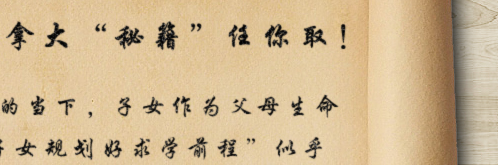 拿大“秘籍”任你取！
的当下，子女作为父母生命
女规划好求学前程”似乎